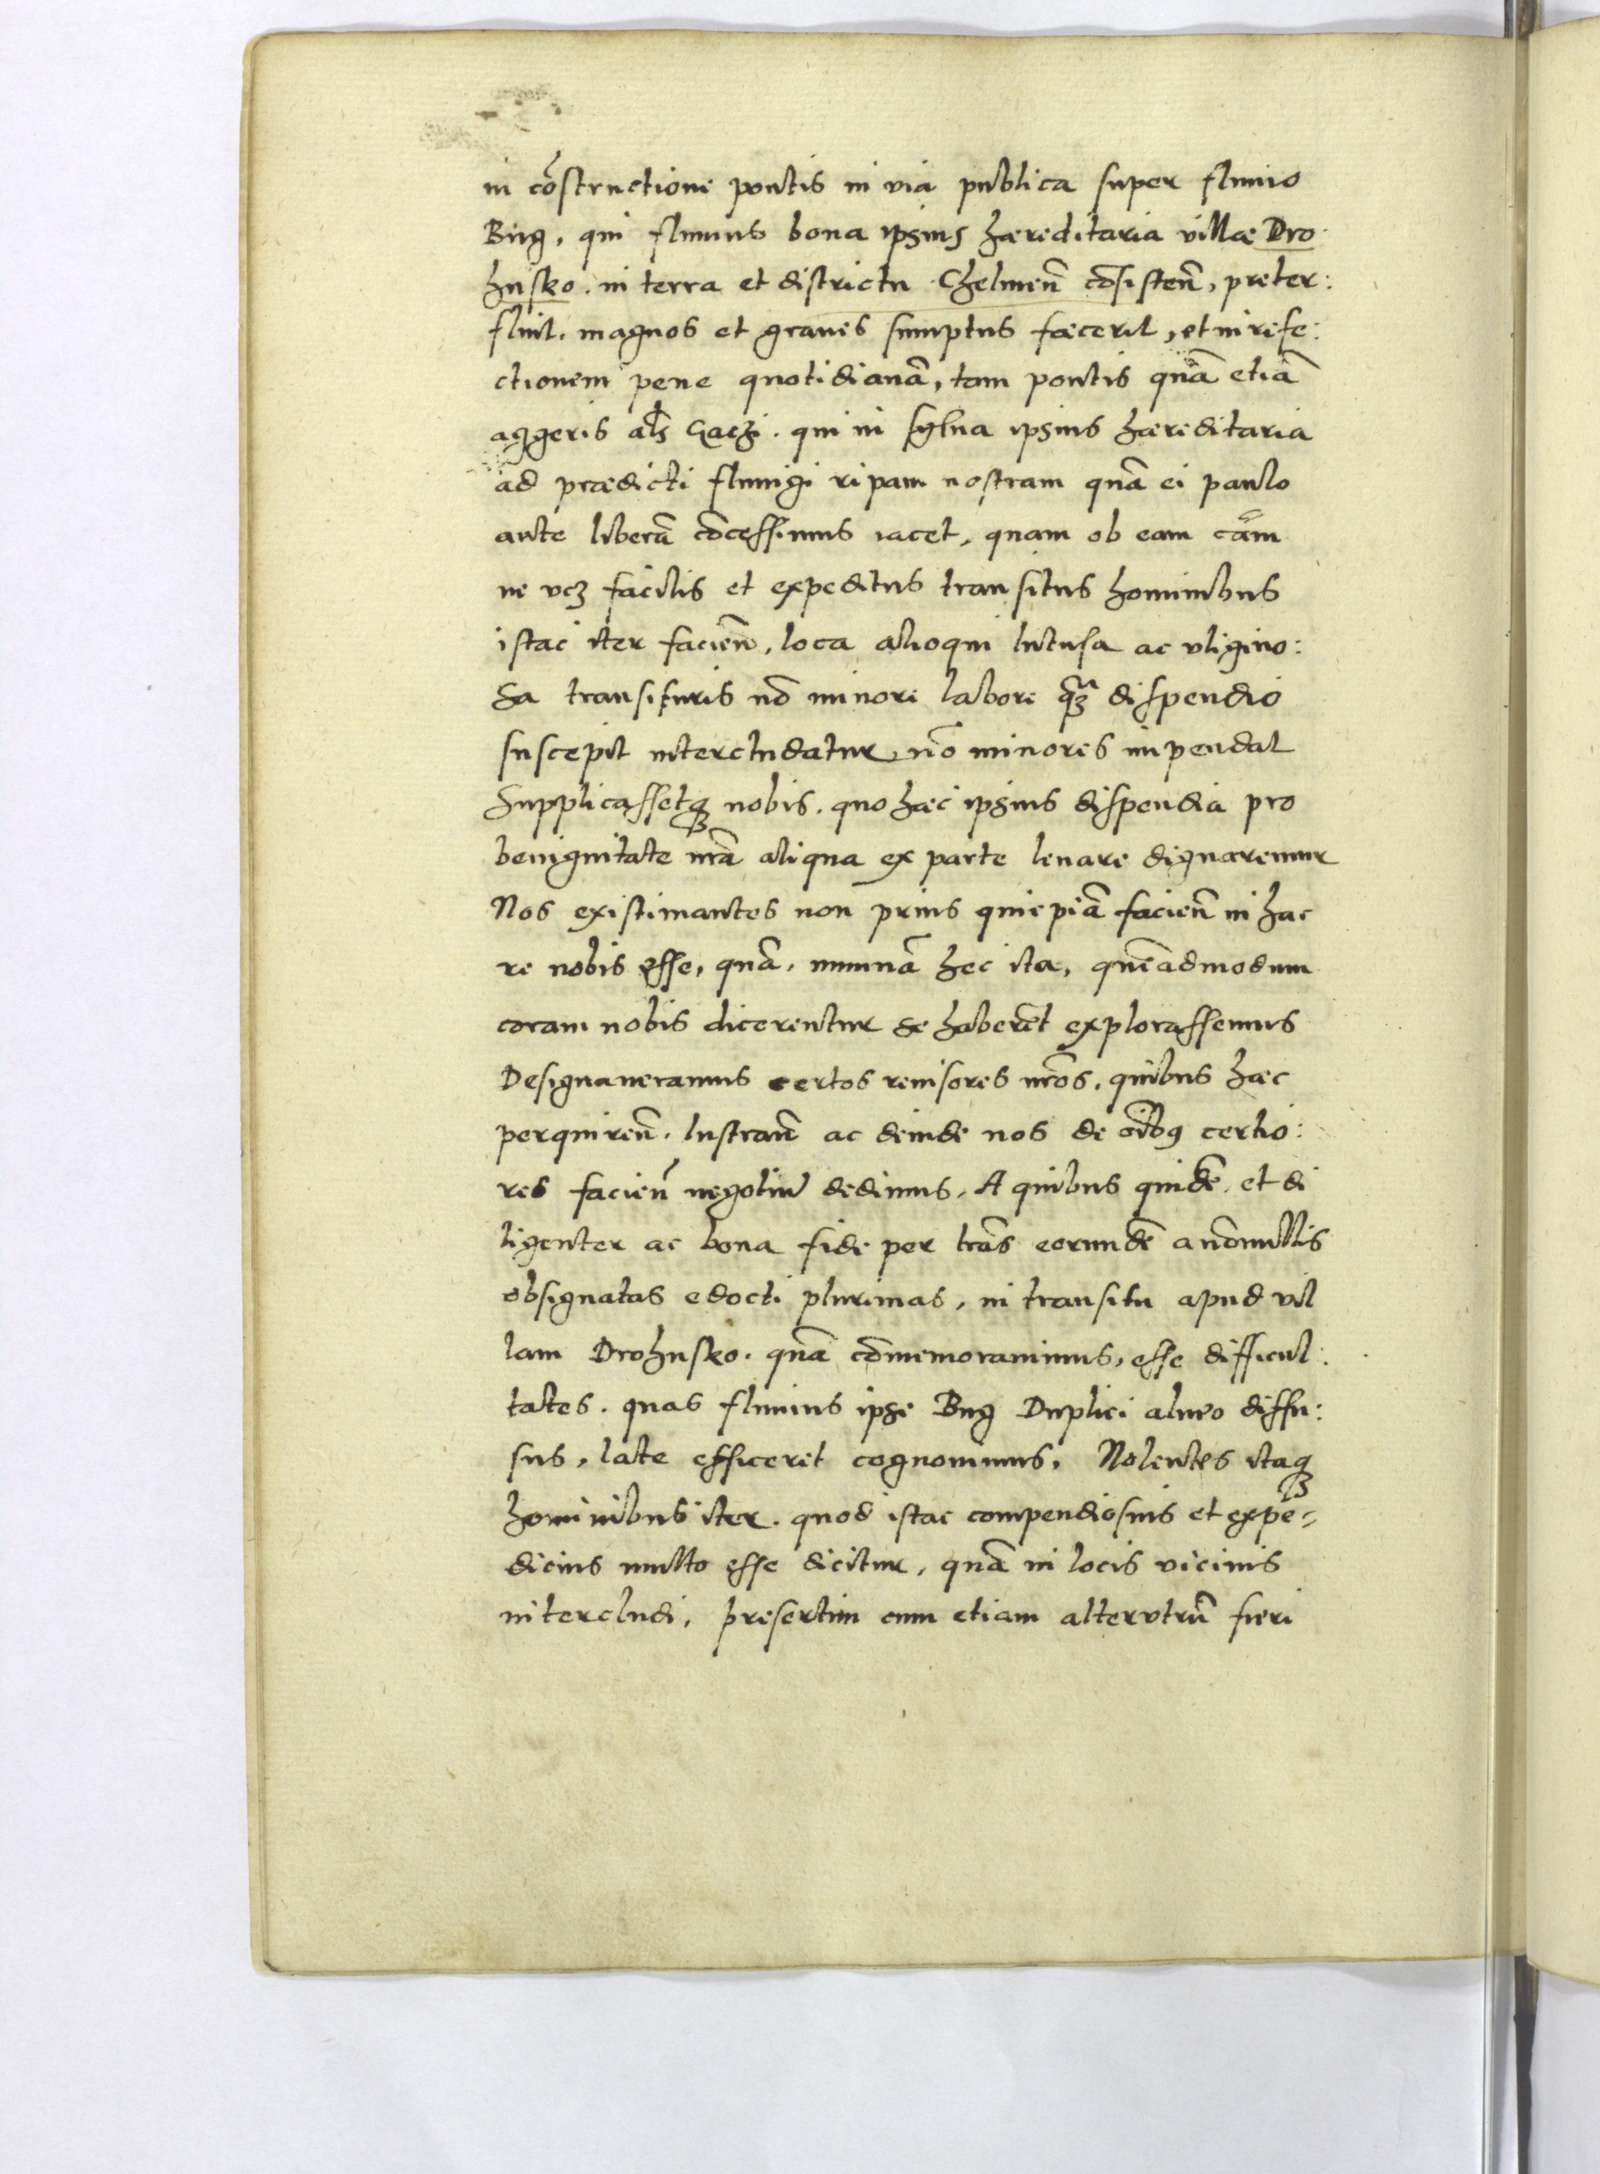 in cõstructione pontis in via publica super fluuio
Bug, qui fluuius bona ipsius hæreditaria villæ Dro
husko. in terra et districtu Chelmeñ cõsisteñ, preter:
fluit. magnos et graues sumptus fæcerit, et in refe:
ctionem pene quotidianã, tam pontis quã etiã
aggeris als Gaczi. qui in sylua ipsius hæreditaria
ad prædicti fluuigi ripam nostram quã ei paulo
ante liberã cõcessimus iacet, quam ob eam cãm
ne vcz facilis et expeditus transitus hominibus
istac iter facieñ, loca alioqui lutusa ac vligino:
sa transituris nõ minore labore qz dispendio
suscepit intercludatur, nõ minores impendat
Supplicassetqz nobis. quo hæc ipsius dispendia pro
benignitate nrã aliqua ex parte leuare dignaremur
Nos existimantes non prius quicpiã facieñ in hac
re nobis esse, quã, numnã hec ita, quẽadmodum
coram nobis dicerentur se haberẽt explorassemus
Designaueramus certos reuisores nrõs, quibus hæc
perquireñ. lustrañ ac deinde nos de oĩbus certio:
res facieñ negotiũ dedimus, A quibus quidẽ, et di
ligenter ac bona fide per lrãs eorundẽ a nõnullis
obsignatas edocti plurimas, in transitu apud vil
lam Drohusko. quã cõmemorauimus, esse difficul:
tates. quas fluuius ipse Bug Duplici alueo diffu:
sus, late efficeret cognouimus, Nolentes itaqz
hominibus iter. quod istac compendiosius et expe=
dicius multo esse dicitur, quã in locis vicinis
intercludi, presertim cum etiam altervtrũ fieri